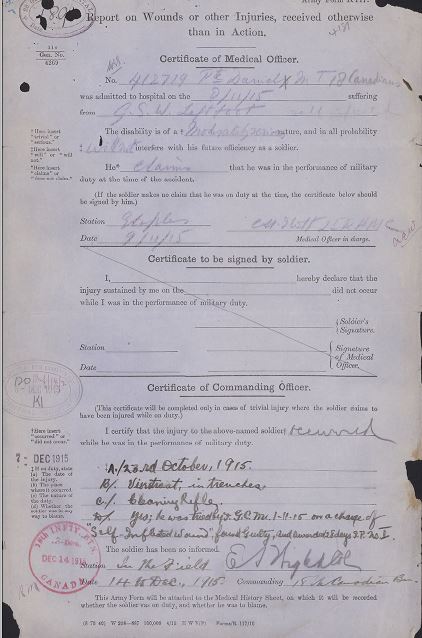 Army Form
Report on Wounds or other Injuries, received otherwise
than in Action.
118
Gen. No.
4269
Certificate of Medical Officer.
No. 412729 Pte Daniels M T 18 Canadians
was admitted to hospital on the 8/11/15 suffering
from G.S.W. Left foot
† Here insert "trivial" or "serious."
The disability is of a † nature, and in all probability
‡ Here insert "will" or "will not."
‡ interfere with his future efficiency as a soldier.
* Here insert "claims" or "does not claim."
He* claims that he was in the performance of military
duty at the time of the accident.
(If the soldier makes no claim that he was on duty at the time, the certificate below should
be signed by him.)
Station Etaples
Date 9/11/15 Medical Officer in charge.
Certificate to be signed by soldier.
I, hereby declare that the
injury sustained by me on the did not occur
while I was in the performance of military duty.
Soldier's Signature.
Station
Signature of Medical Officer.
Date
Certificate of Commanding Officer.
(This certificate will be completed only in cases of trivial injury where the soldier claims to
have been injured while on duty.)
† Here insert "occurred" or "did not occur."
I certify that the injury to the above-named soldier† occurred
while he was in the performance of military duty.
DEC 1915
‡ If on duty, state (a) The date of the injury.
(b) The place where it occurred.
(c) The nature of the duty.
(d) Whether the soldier was in any way to blame.
A/ 23rd October, 1915.
B/. Vierstraat, in trenches.
C/. Cleaning Rifle.
D/. Yes; he was tried by F.G.C.M. 1-11-15 on a charge of
"Self-Inflicted Wound", found Guilty, and awarded 8 days F.P. No I.
The soldier has been so informed.
Station In the Field
Date 14th Dec, 1915 Commanding 18th Canadian Bn.
18th INFTY. BTN.
DEC 14 1915
CANADIANS
This Army Form will be attached to the Medical History Sheet, on which it will be recorded
whether the soldier was on duty, and whether he was to blame.